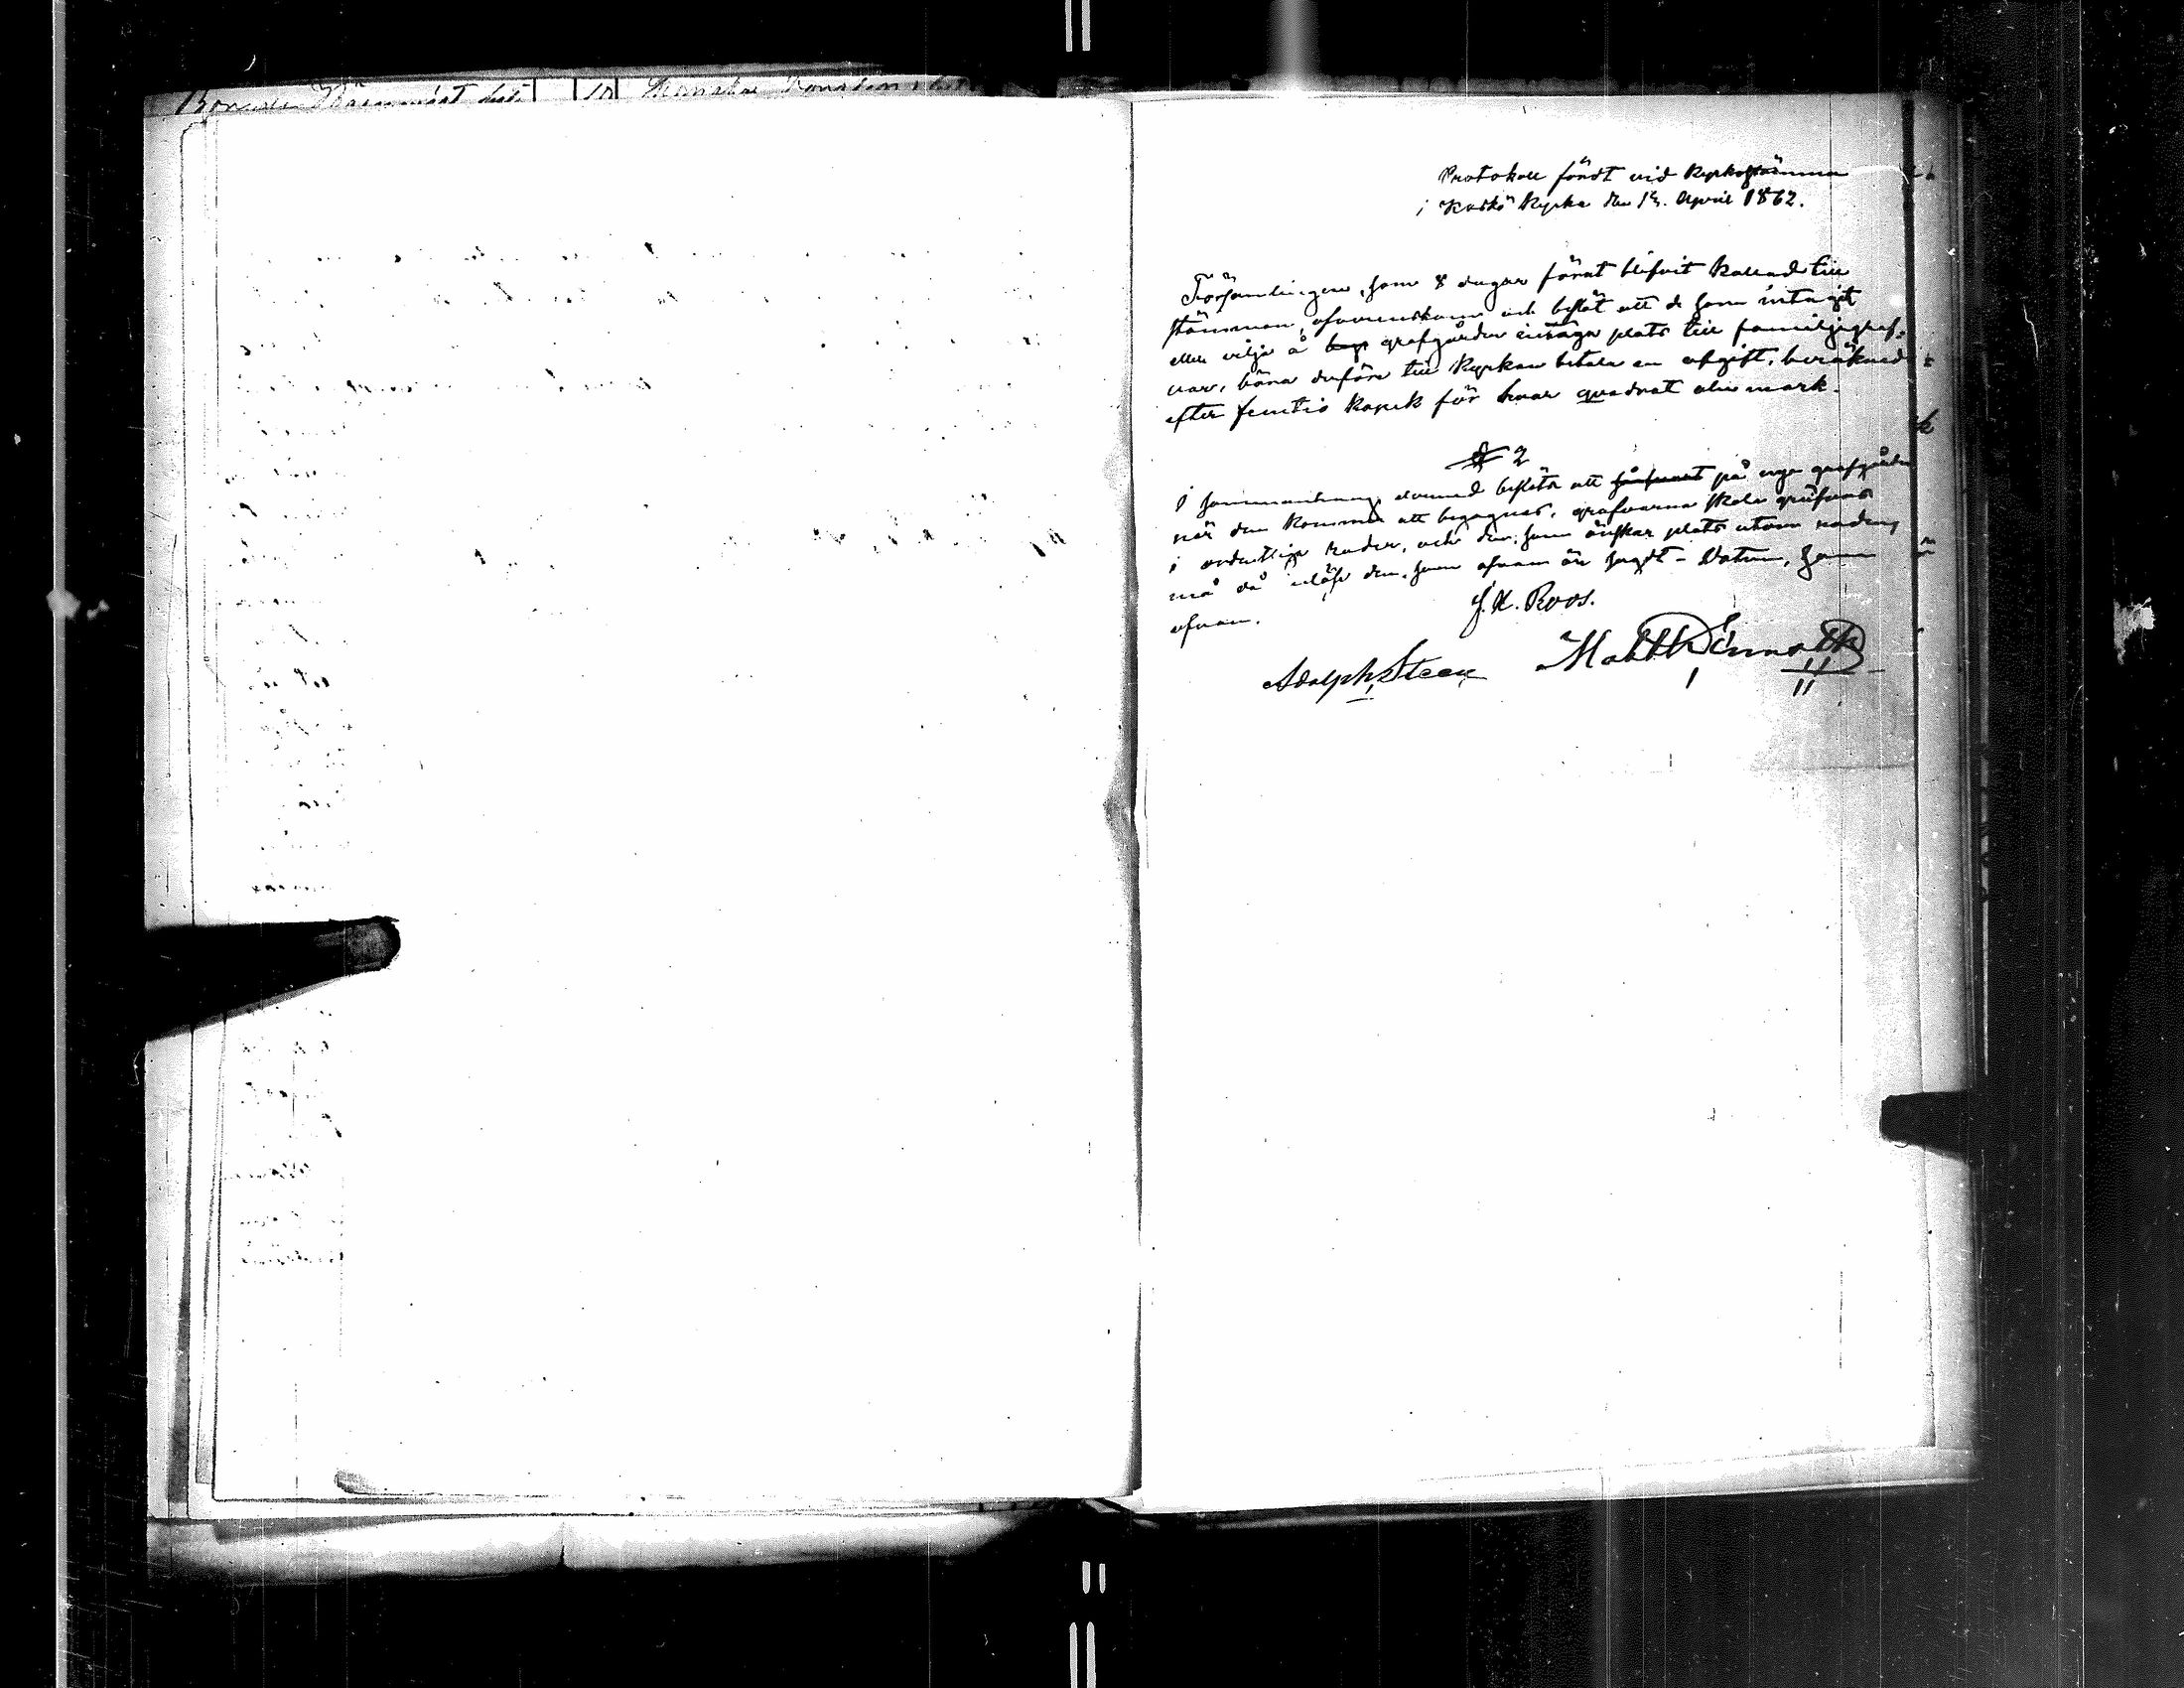 Protokoll fördt vid Kyrkostämma
i Kaskö Kyrka den 13. April 1862.
Församlingen, som 8 dagar förut blifvit kallad till
stämman, öfverenskom och beslöt att de som intagit
eller vilja å grafgården intaga plats till familjegraf-
var, böra derföre till Kyrkan betala en afgift, beräknad
efter femtio kopek för hvar quadrat aln mark.
§ 2
I sammanhang dermed beslöts att på nya grafgården
när den kommer att begagnas, grafvarna skola gräfvas
i ordentliga rader, och den, som önskar plats utom raden,
må då inlösa den, som ofvan är sagdt - Datum, som
ofvan.
J. H. Roos.
Adolph Steen Matth